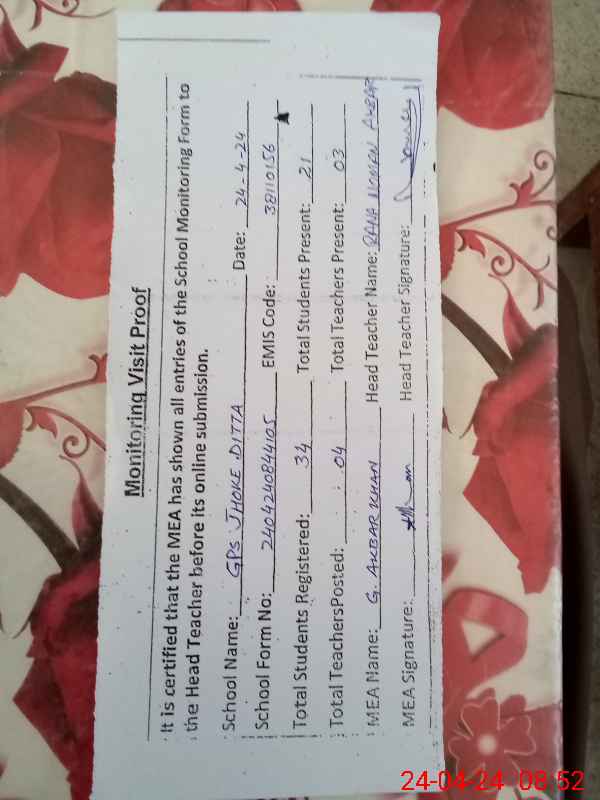 Monitoring Visit Proof
It is certified that the MEA has shown all entries of the School Monitoring Form to
the Head Teacher before its online submission.
School Name: GPS JHOKE DITTA Date: 24-4-24
School Form No: 2404240844105 EMIS Code: 38110156
Total Students Registered: 34 Total Students Present: 21
Total TeachersPosted: 04 Total Teachers Present: 03
MEA Name: G. AKBAR KHAN Head Teacher Name: RANA NOMAN AKBAR
MEA Signature: Head Teacher Signature:
24-04-24 08:52